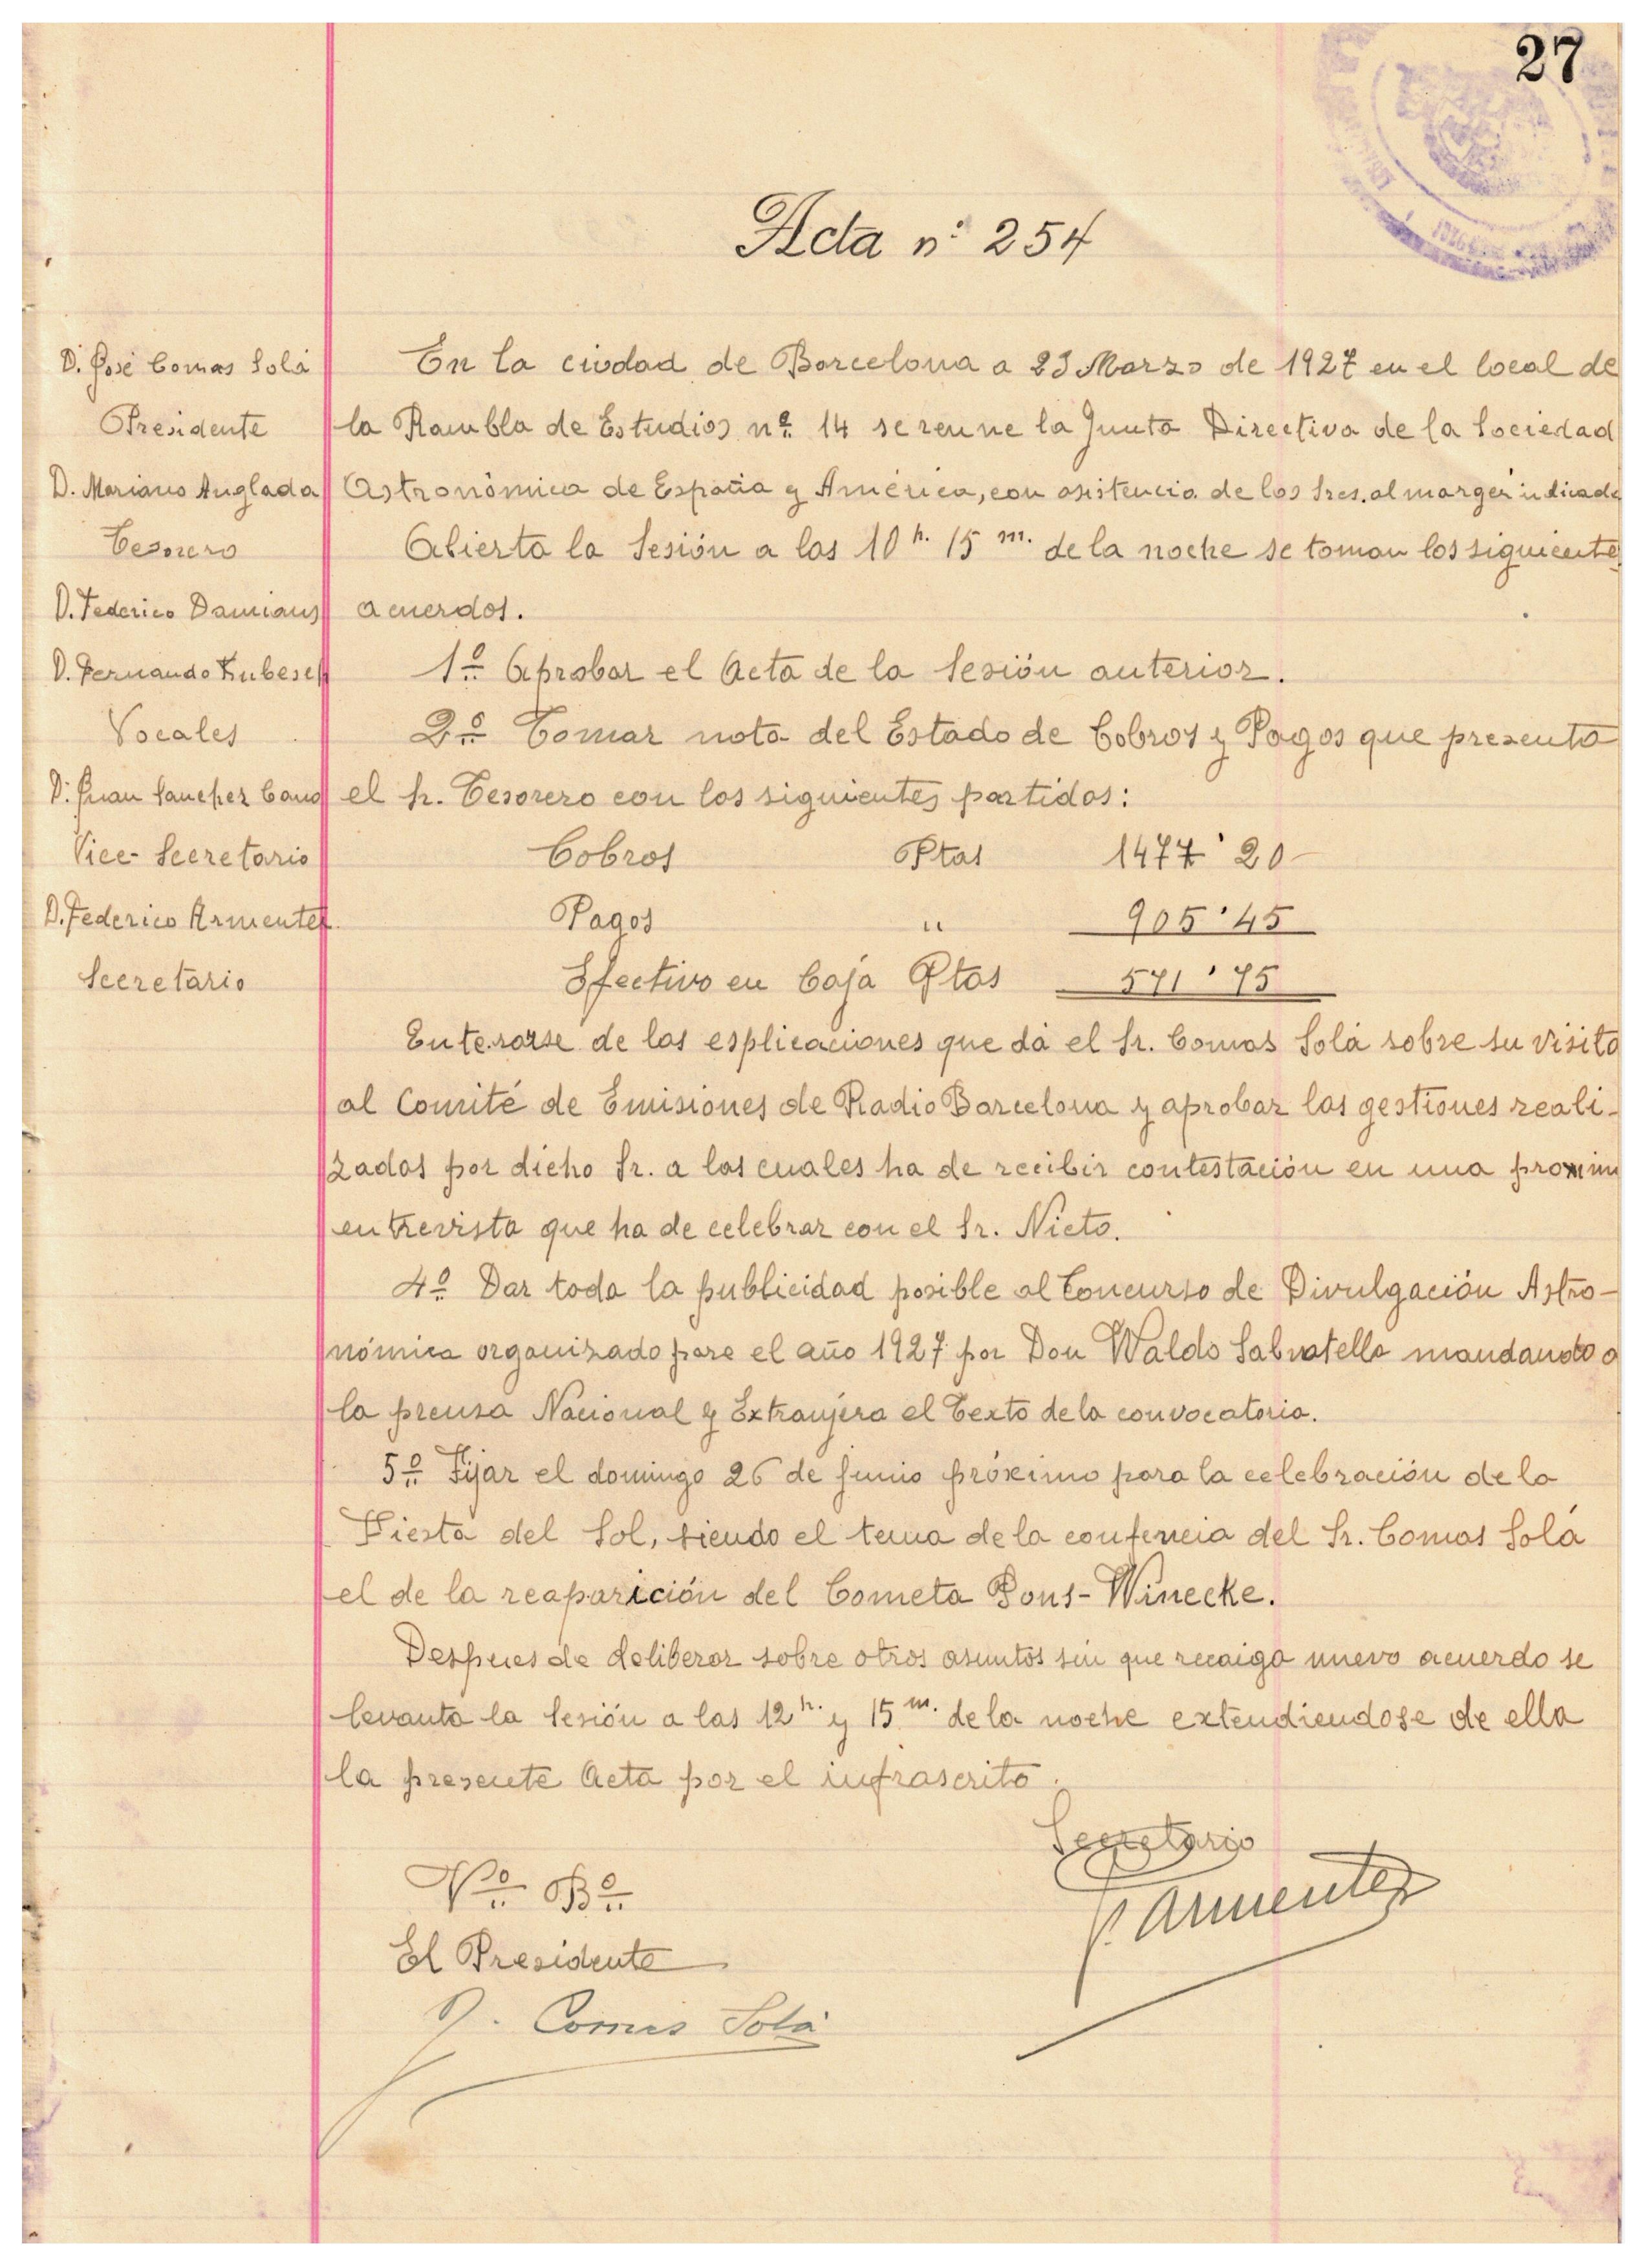 27
Acta nº 254
D. José Comas Solá
Presidente
D. Mariano Anglada
Tesorero
D. Federico Damians
D. Fernando
Vocales
D. Juan Sanchez Cano
Vice-Secretario
D. Federico Armenter
Secretario
En la ciudad de Barcelona a 23 Marzo de 1927 en el local de
la Rambla de Estudios nº 14 se reune la Junta Directiva de la Sociedad
Astronómica de España y América, con asistencia de los Sres. al margen indicado
Abierta la Sesión a las 10 h. 15 m. de la noche se toman los siguiente
acuerdos.
1º Aprobar el Acta de la Sesión anterior.
2º Tomar nota del Estado de Cobros y Pagos que presenta
el Sr. Tesorero con los siguientes partidas:
Cobros Ptas 1477'20
Pagos " 905'45
Efectivo en Caja Ptas 571'75
Enterarse de las esplicaciones que dá el Sr. Comas Solá sobre su visita
al Comité de Emisiones de Radio Barcelona y aprobar las gestiones reali-
zadas por dicho Sr. a las cuales ha de recibir contestación en una proxim
entrevista que ha de celebrar con el Sr. Nieto.
4º Dar toda la publicidad posible al Concurso de Divulgación Astro-
nómica organizado para el año 1927 por Don Waldo Salvatella mandando a
la prensa Nacional y Extranjera el Texto de la convocatoria.
5º Fijar el domingo 26 de Junio próximo para la celebración de la
Fiesta del Sol, siendo el tema de la confencia del Sr. Comas Solá
el de la reaparición del Cometa Pons-Winecke.
Despues de deliberar sobre otros asuntos sin que recaiga nuevo acuerdo se
levanta la Sesión a las 12 h. y 15 m. de la noche extendiendose de ella
la presente Acta por el infrascrito.
Secretario
F. Armenter
Vº Bº
El Presidente
J. Comas Solá